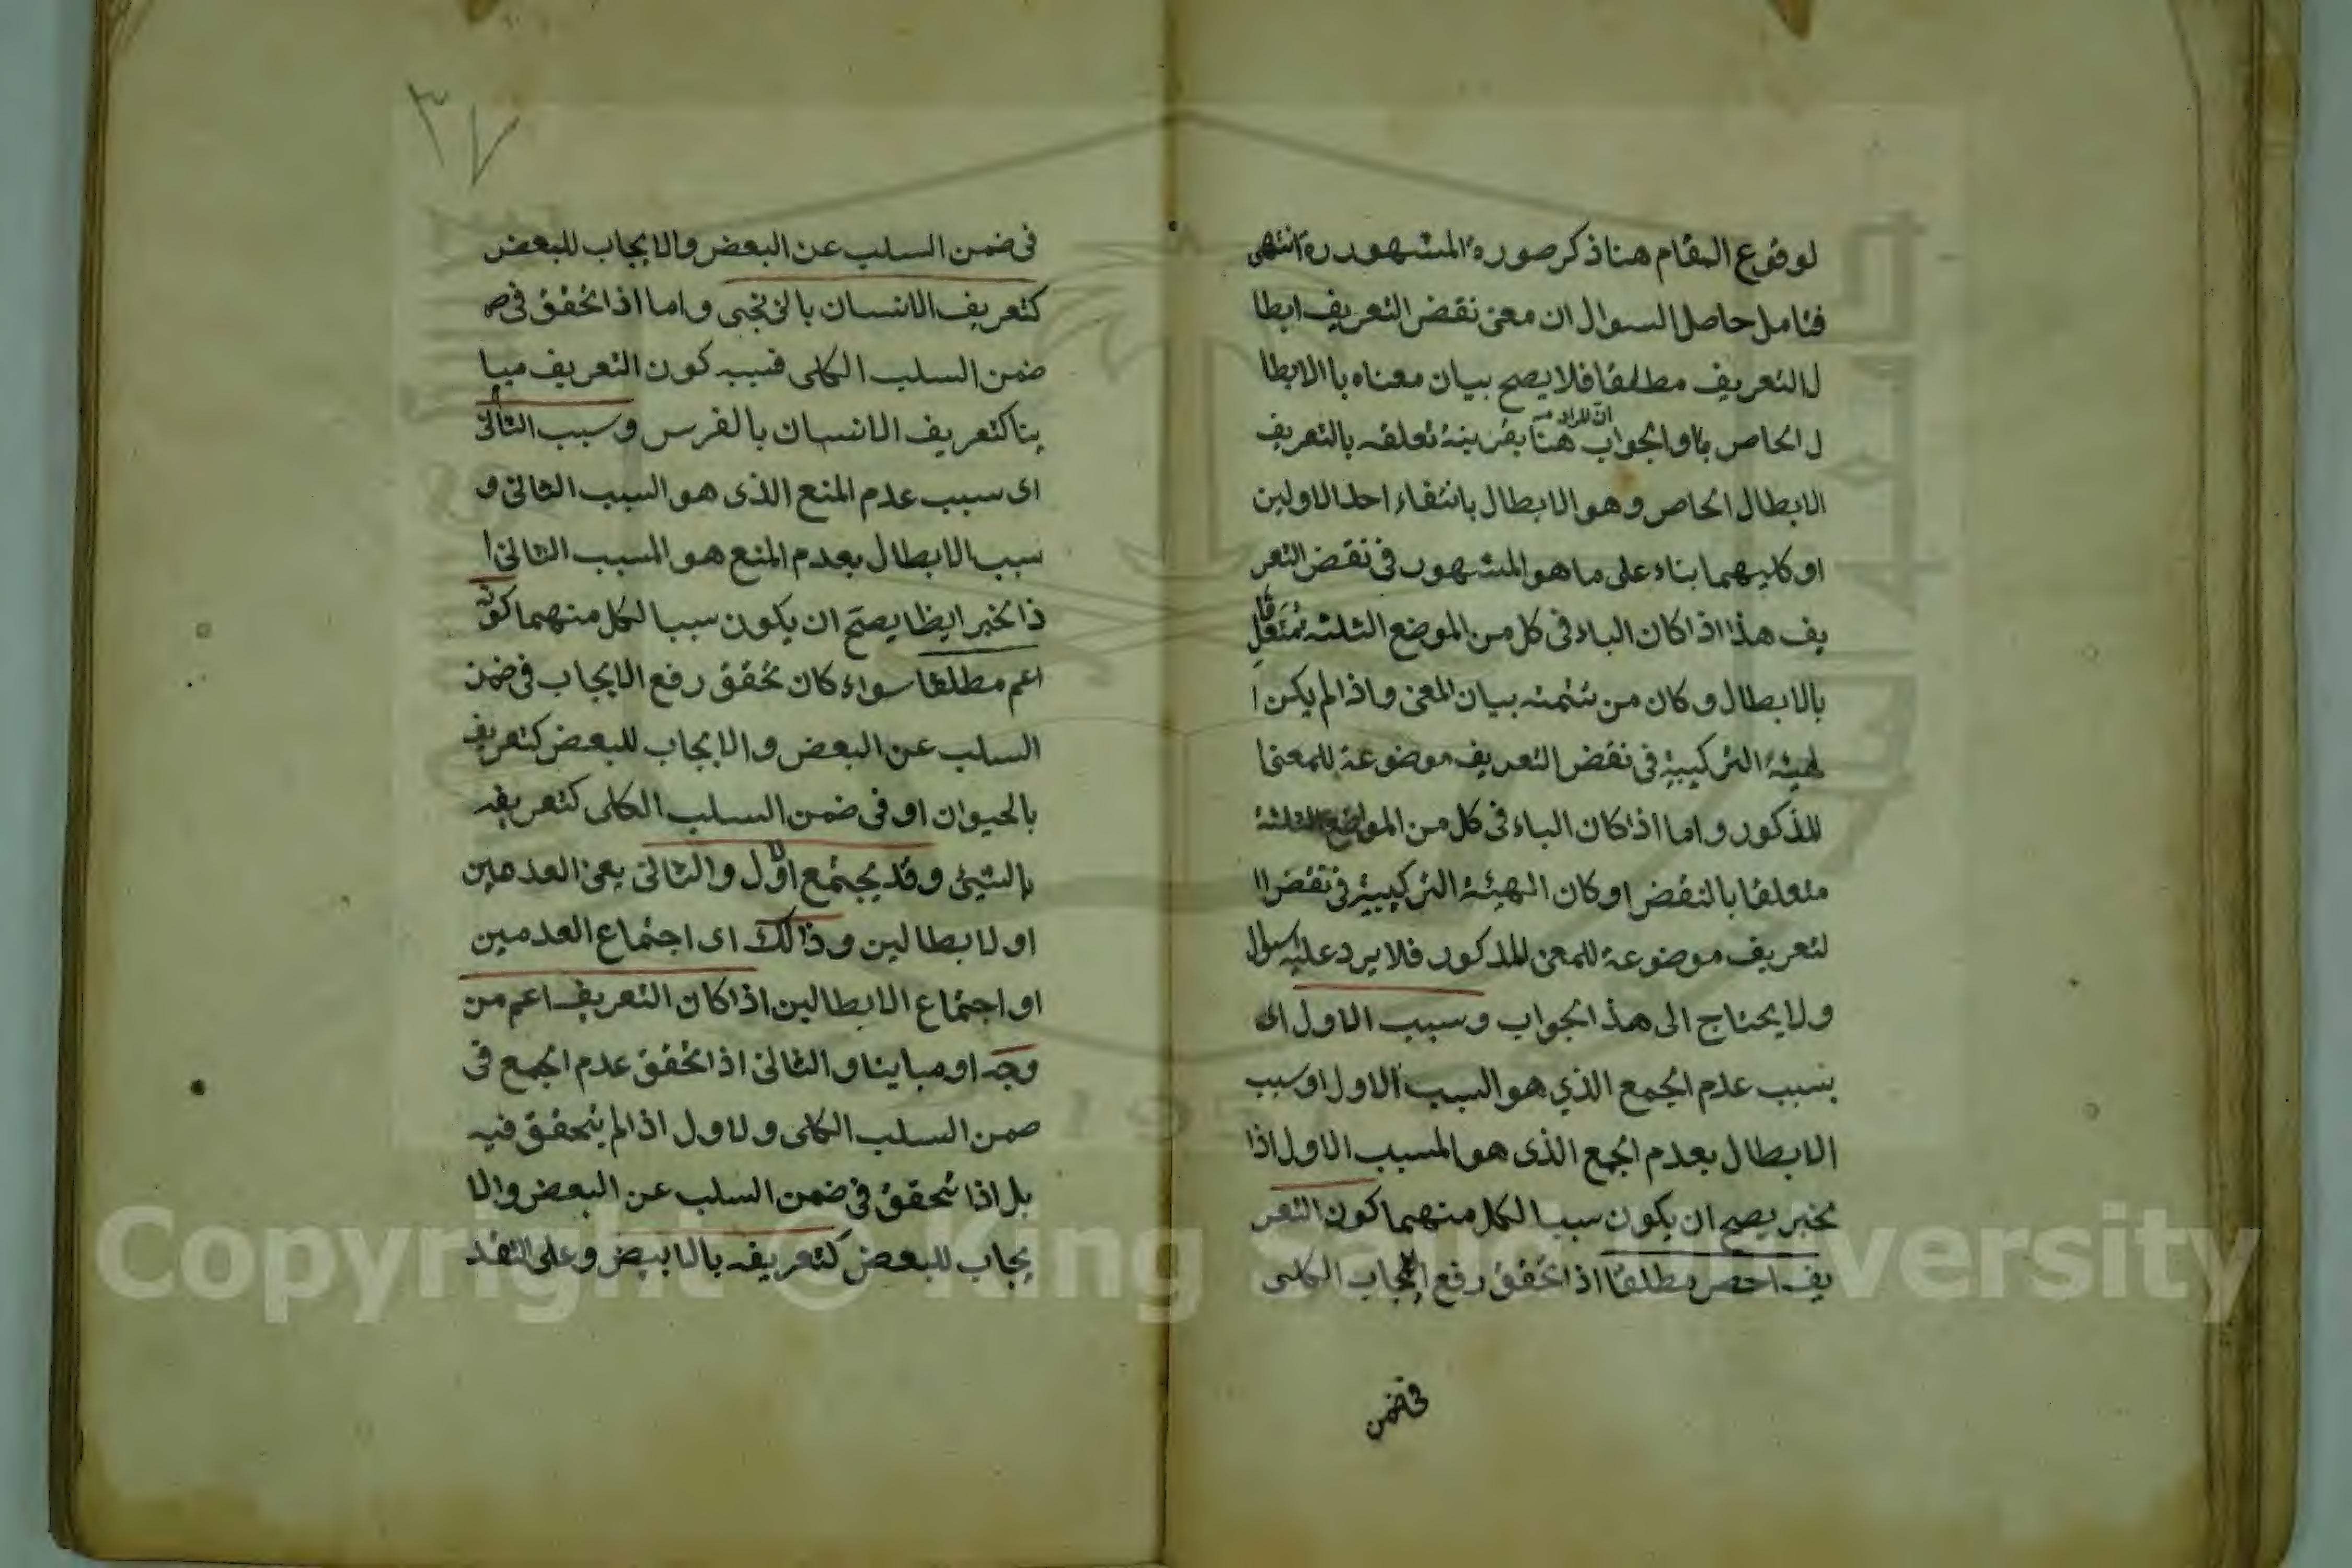 لوقوع المقام هنا ذكر صورة المشهورة انتهى
فتامل حاصل السوال ان معنى نقض التعريف ابطا
ل التعريف مطلقا فلا يصح بيان معناه باالابطا
ل الخاص والجواب ان المراد منه هنا بقرينة تعلقه بالتعريف
الابطال الخاص وهو الابطال بانتفاء احد الاولين
او كليهما بناء على ما هو المشهور فى نقض التعر
يف هذا اذا كان الباء فى كل من الموضع الثلثه متعلقا
بالابطال وكان من تتمته بيان المعنى واذا لم يكن ا
لهيئة التركيبية فى نقض التعريف موضوعة للمعنى ا
لمذكور واما اذا كان الباء فى كل من المواضع الثلثة
متعلقا بالنقض او كان الهيئة التركيبية فى نقض ا
لتعريف موضوعة للمعنى المذكور فلا يرد عليه سوال
ولا يحتاج الى هذ الجواب وسبب الاول اى
بسبب عدم الجمع الذي هو السبب الاول او سبب
الابطال بعدم الجمع الذى هو المسبب الاول اذا
نخبر يصح ان يكون سببا لكل منهما كون التعر
يف اخص مطلقا اذا تحقق رفع الايجاب الكلى
فى ضمن
٣٧
فى ضمن السلب عن البعض والايجاب للبعض
كتعريف الانسان بالزنجى واما اذا تحقق فى
ضمن السلب الكلى فسببه كون التعريف مبا
ينا كتعريف الانسان بالفرس وسبب الثانى
اى سبب عدم المنع الذى هو السبب الثانى و
سبب الابطال بعدم المنع هو المسبب الثانى ا
ذا نخبر ايظا يصح ان يكون سببا لكل منهما كونه
اعم مطلقا سواء كان تحقق رفع الايجاب فى ضمن
السلب عن البعض والايجاب للبعض كتعريف
بالحيوان او فى ضمن السلب الكلى كتعريفه
بالشيئ وقد يجتمع الاول والثانى يعنى العدمين
او لابطالين وذالك اى اجتماع العدمين
او اجتماع الابطالين اذا كان التعريف اعم من
وجه او مباينا والثانى اذا تحقق عدم الجمع فى
ضمن السلب الكلى ولاول اذا لم يتحقق فيه
بل اذا تحقق فى ضمن السلب عن البعض والا
يجاب للبعض كتعريفه بالابيض وعلى التقد
Copyright © King Saud University